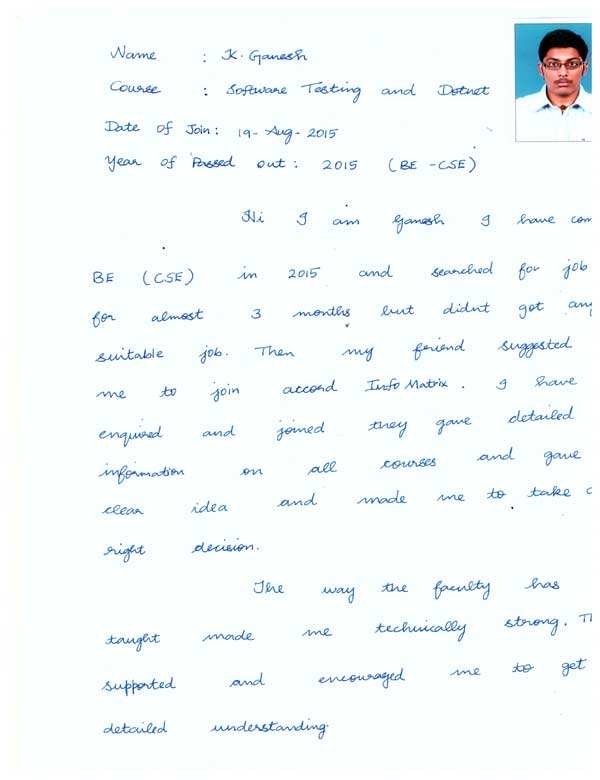 Name : K. Ganesh
Course : Software Testing and Dotnet
Date of Join : 19-Aug-2015
Year of Passed out : 2015 (BE-CSE)
Hi I am Ganesh I have
BE (CSE) in 2015 and searched for job
for almost 3 months but didnt got
suitable job. Then my friend suggested
me to join accord Info Matrix. I have
enquired and joined they gave detailed
information on all courses and gave
clear idea and made me to take
right decision.
The way the faculty has
taught made me technically strong.
supported and encouraged me to get
detailed understanding.